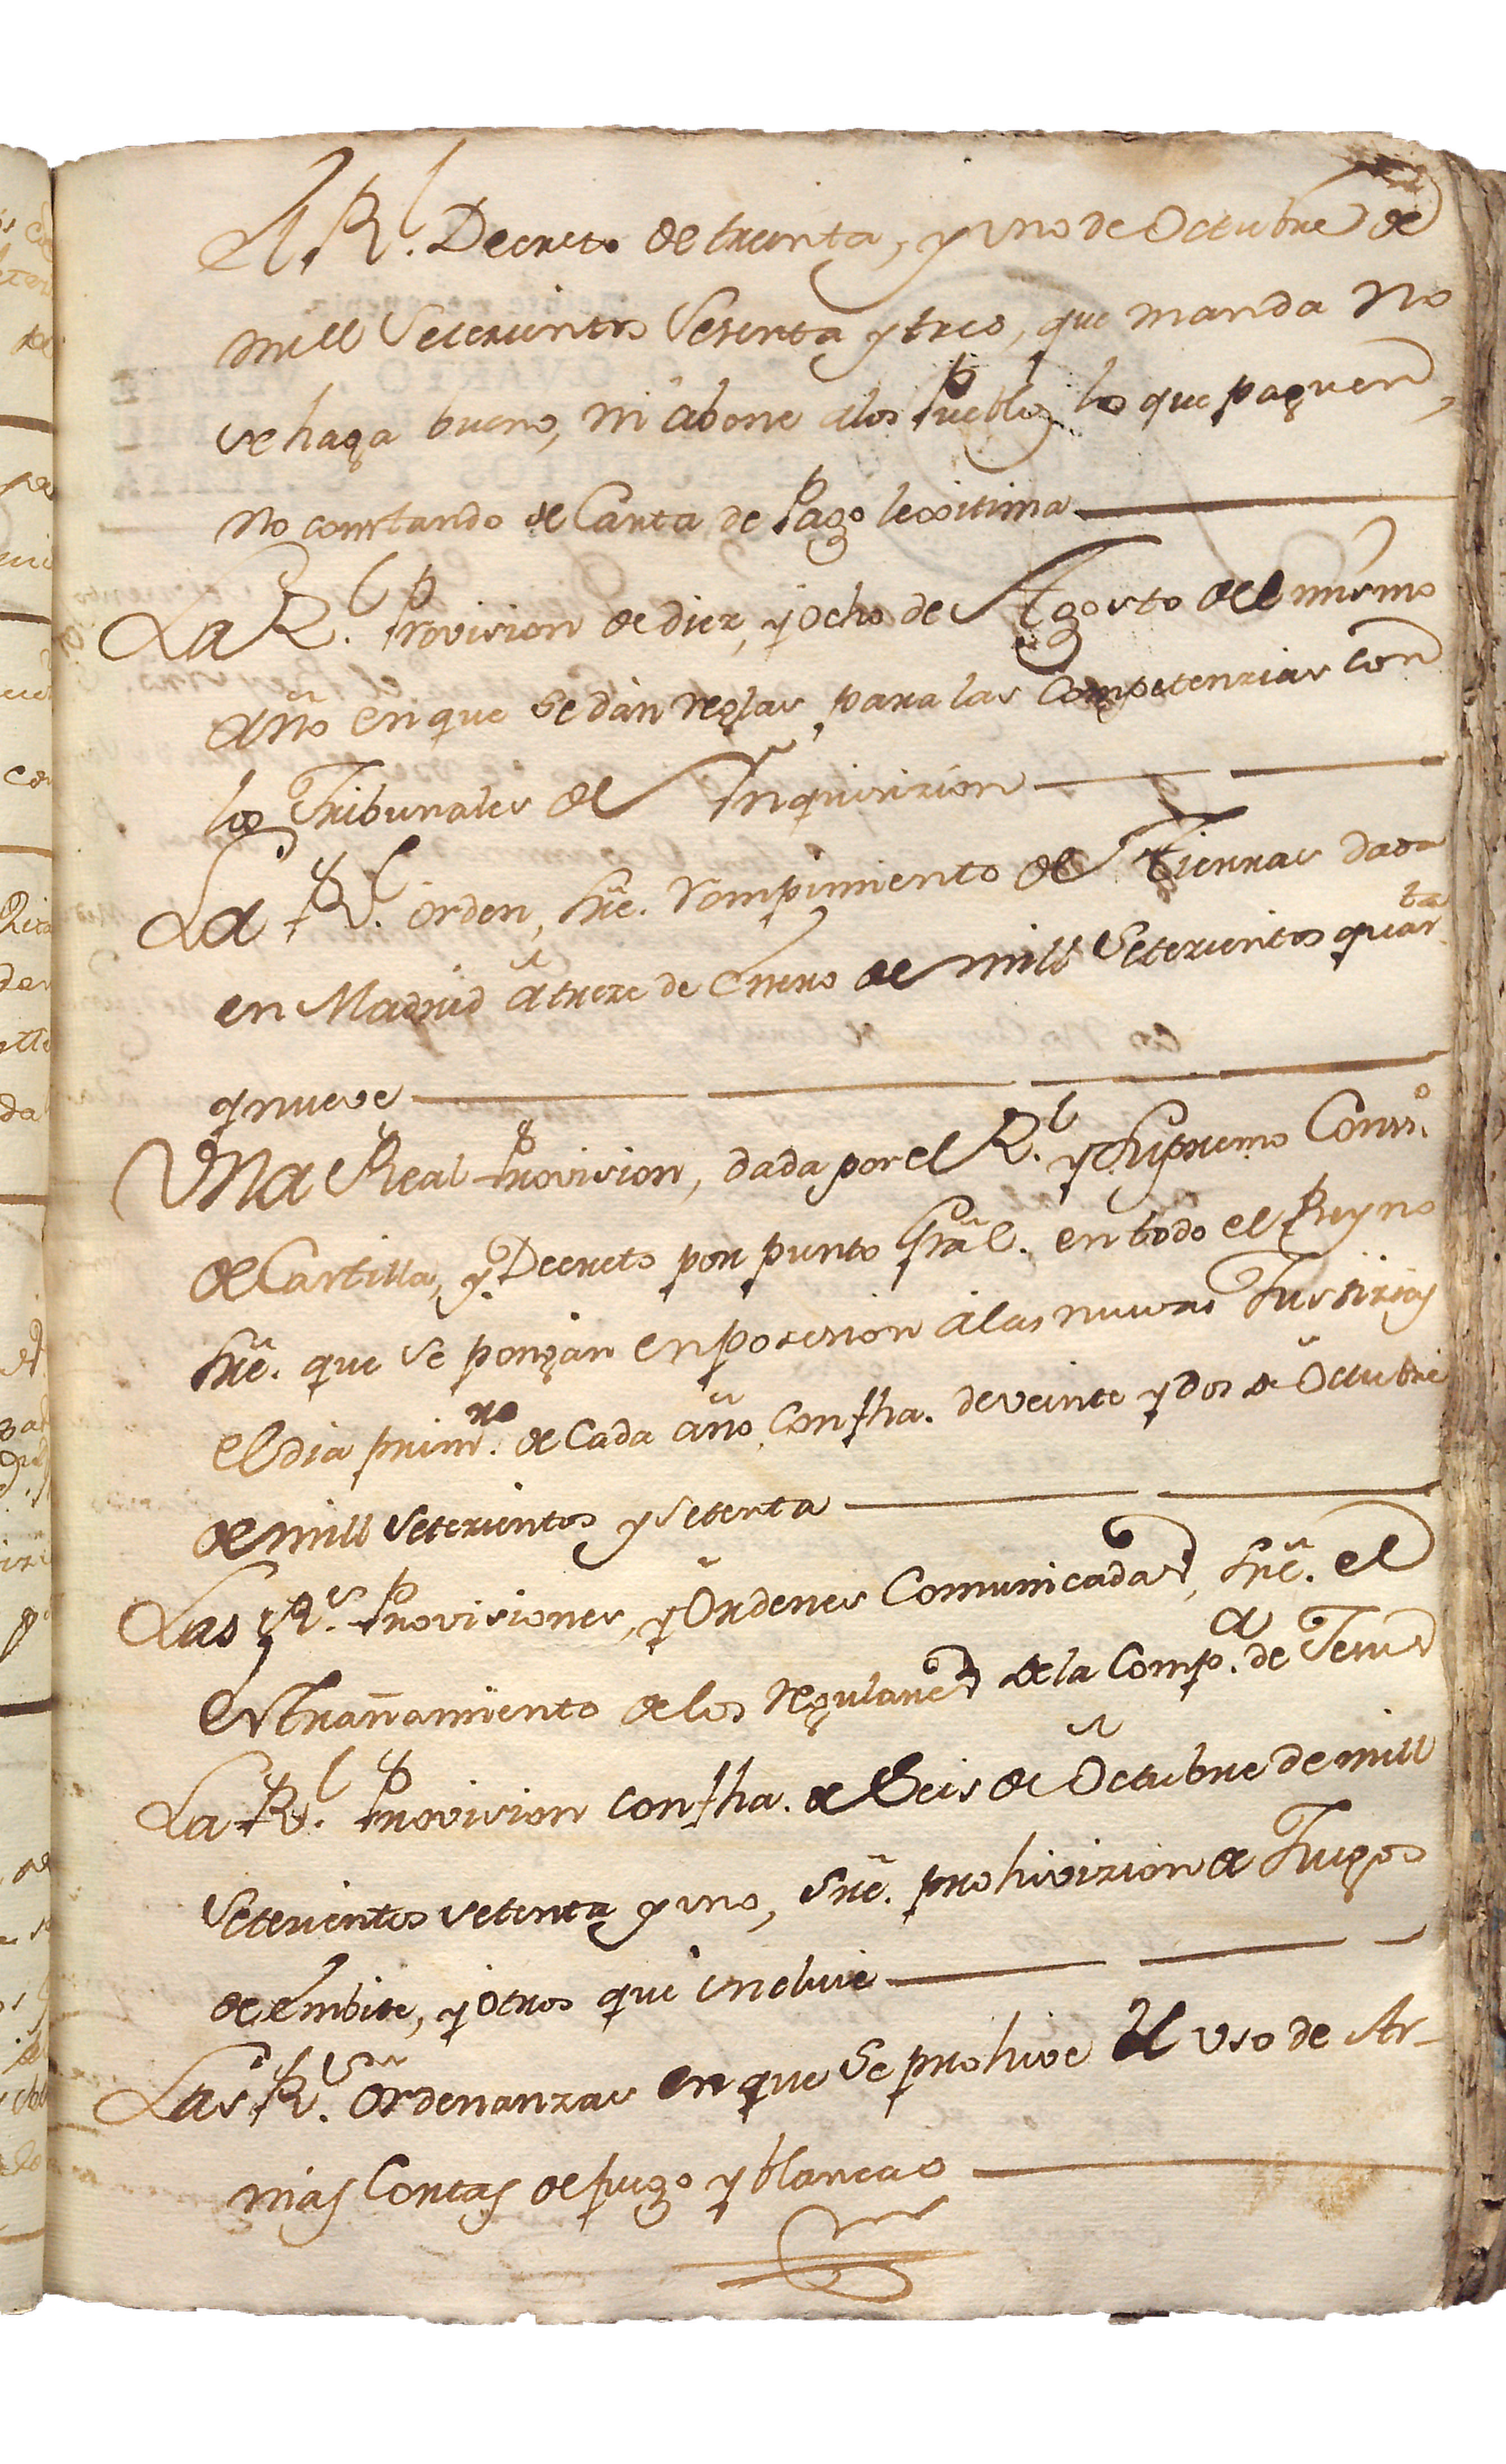 El R.l Decreto de treinta, y uno de Octubre de
mill Setecientos Sesenta y tres, que manda no
se haga bueno, ni abone alos Pueblos lo que paguen,
no constando de Carta de Pago lexitima
La R.l Provision de diez, y ocho de Agosto del mismo
año en que se dàn reglas, para las Competenzias con
los Tribunales de Inquisizion
La R.l orden, sre. rompimiento de Tierras dada
en Madrid à treze de Enero de mill Setezientos quar.ta
y nueve
Una Real Provision, dada por el R.l y Supremo Cons.o
de Castilla, y Decreto por punto gral. en todo el Reyno
sre. que se pongan en posesion àlas nuevas Justizias
el dia prim.ro de Cada año, con fha. de veinte y dos de Octubre
de mill Setezientos y setenta
Las R.s Provisiones, y Ordenes Comunicadas, sre. el
estrañamiento de los regulares de la Comp.a de Jesus
La R.l Provision con fha. de Seis de Octubre de mill
Setezientos setenta y uno, sre. prohivizion de Juegos
de embite, y otros que incluie
Las R.s Ordenanzas en que se prohive el uso de Ar-
mas Cortas de fuego y blancas